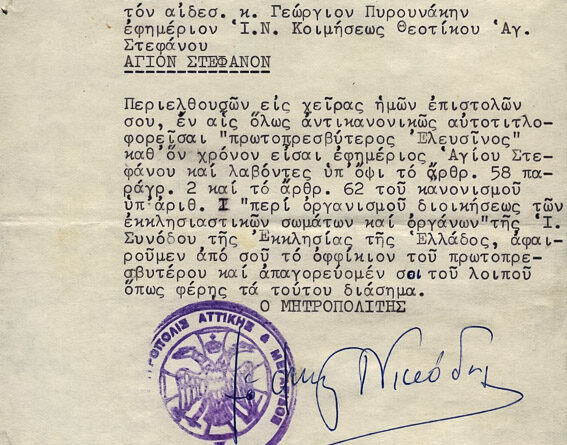 τόν αἰδεσ. κ. Γεώργιον Πυρουνάκην
ἐφημέριον Ἱ.Ν. Κοιμήσεως Θεοτίκου Ἁγ.
Στεφάνου
ΑΓΙΟΝ ΣΤΕΦΑΝΟΝ
Περιελθουσῶν εἰς χεῖρας ἡμῶν ἐπιστολῶν
σου, ἐν αἷς ὅλως ἀντικανονικῶς αὐτοτιτλο-
φορεῖσαι "πρωτοπρεσβύτερος Ἐλευσῖνος"
καθ'ὅν χρόνον εἶσαι ἐφημέριος Ἁγίου Στε-
φάνου καί λαβόντες ὑπ'ὄψι τό ἄρθρ. 58 πα-
ράγρ. 2 καί τό ἄρθρ. 62 τοῦ κανονισμοῦ
ὑπ'ἀριθ. I "περί ὀργανισμοῦ διοικήσεως τῶν
ἐκκλησιαστικῶν σωμάτων καί ὀργάνων"τῆς Ἱ.
Συνόδου τῆς Ἐκκλησίας τῆς Ἑλλάδος, ἀφαι-
ροῦμεν ἀπό σοῦ τό ὀφφίκιον τοῦ πρωτοπρε-
σβυτέρου καί ἀπαγορεύομέν σοι τοῦ λοιποῦ
ὅπως φέρῃς τά τούτου διάσημα.
Ο ΜΗΤΡΟΠΟΛΙΤΗΣ
ΑΤΤΙΚΗΣ &